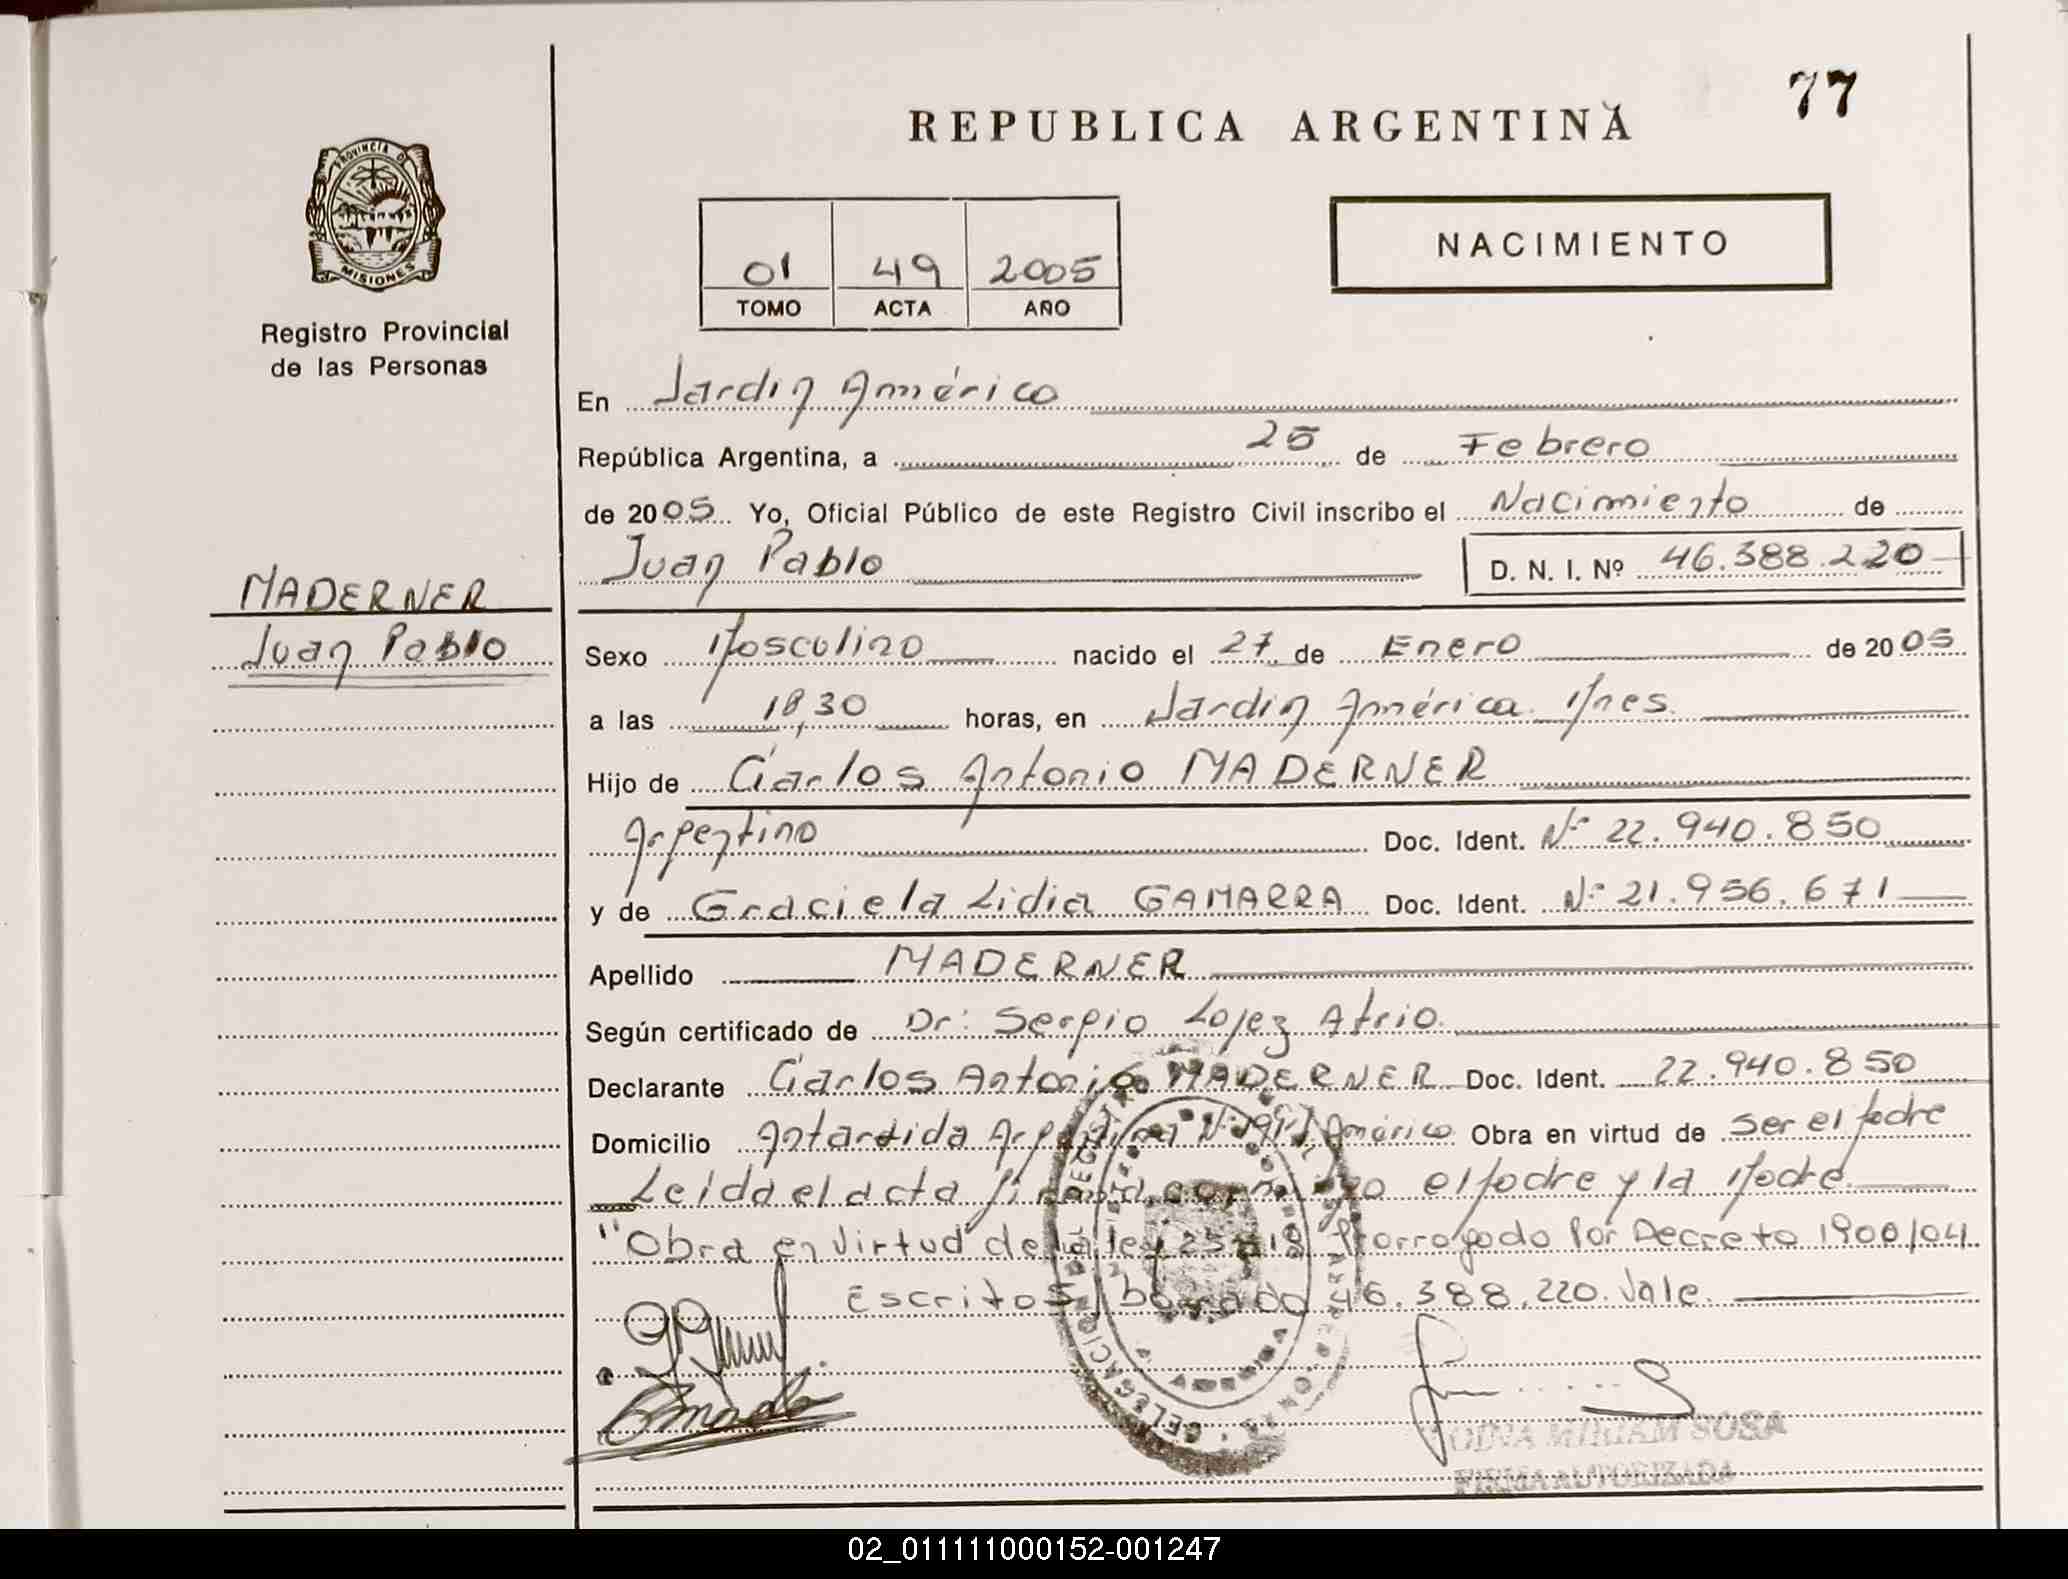 77
REPUBLICA ARGENTINA
PROVINCIA DE
MISIONES
Registro Provincial
de las Personas
01 49 2005
TOMO ACTA AÑO
NACIMIENTO
En Jardín América
República Argentina, a 25 de Febrero
de 2005 Yo, Oficial Público de este Registro Civil inscribo el Nacimiento de
Juan Pablo D. N. I. Nº 46.388.220
MADERNER
Juan Pablo
Sexo Masculino nacido el 27 de Enero de 2005
a las 18,30 horas, en Jardín América. Mnes.
Hijo de Carlos Antonio MADERNER
Argentino Doc. Ident. Nº 22.940.850
y de Graciela Lidia GAMARRA Doc. Ident. Nº 21.956.671
Apellido MADERNER
Según certificado de Dr: Sergio Lopez Atrio.
Declarante Carlos Antonio MADERNER Doc. Ident. 22.940.850
Domicilio Antartida Argentina América Obra en virtud de ser el padre
Leida el acta el Padre y la Madre.
"Obra en virtud de la ley Prorrogado Por Decreto 1900/04
Escritos borrado 46.388.220. Vale.
MIRIAM SOSA
FIRMA AUTORIZADA
02_011111000152-001247